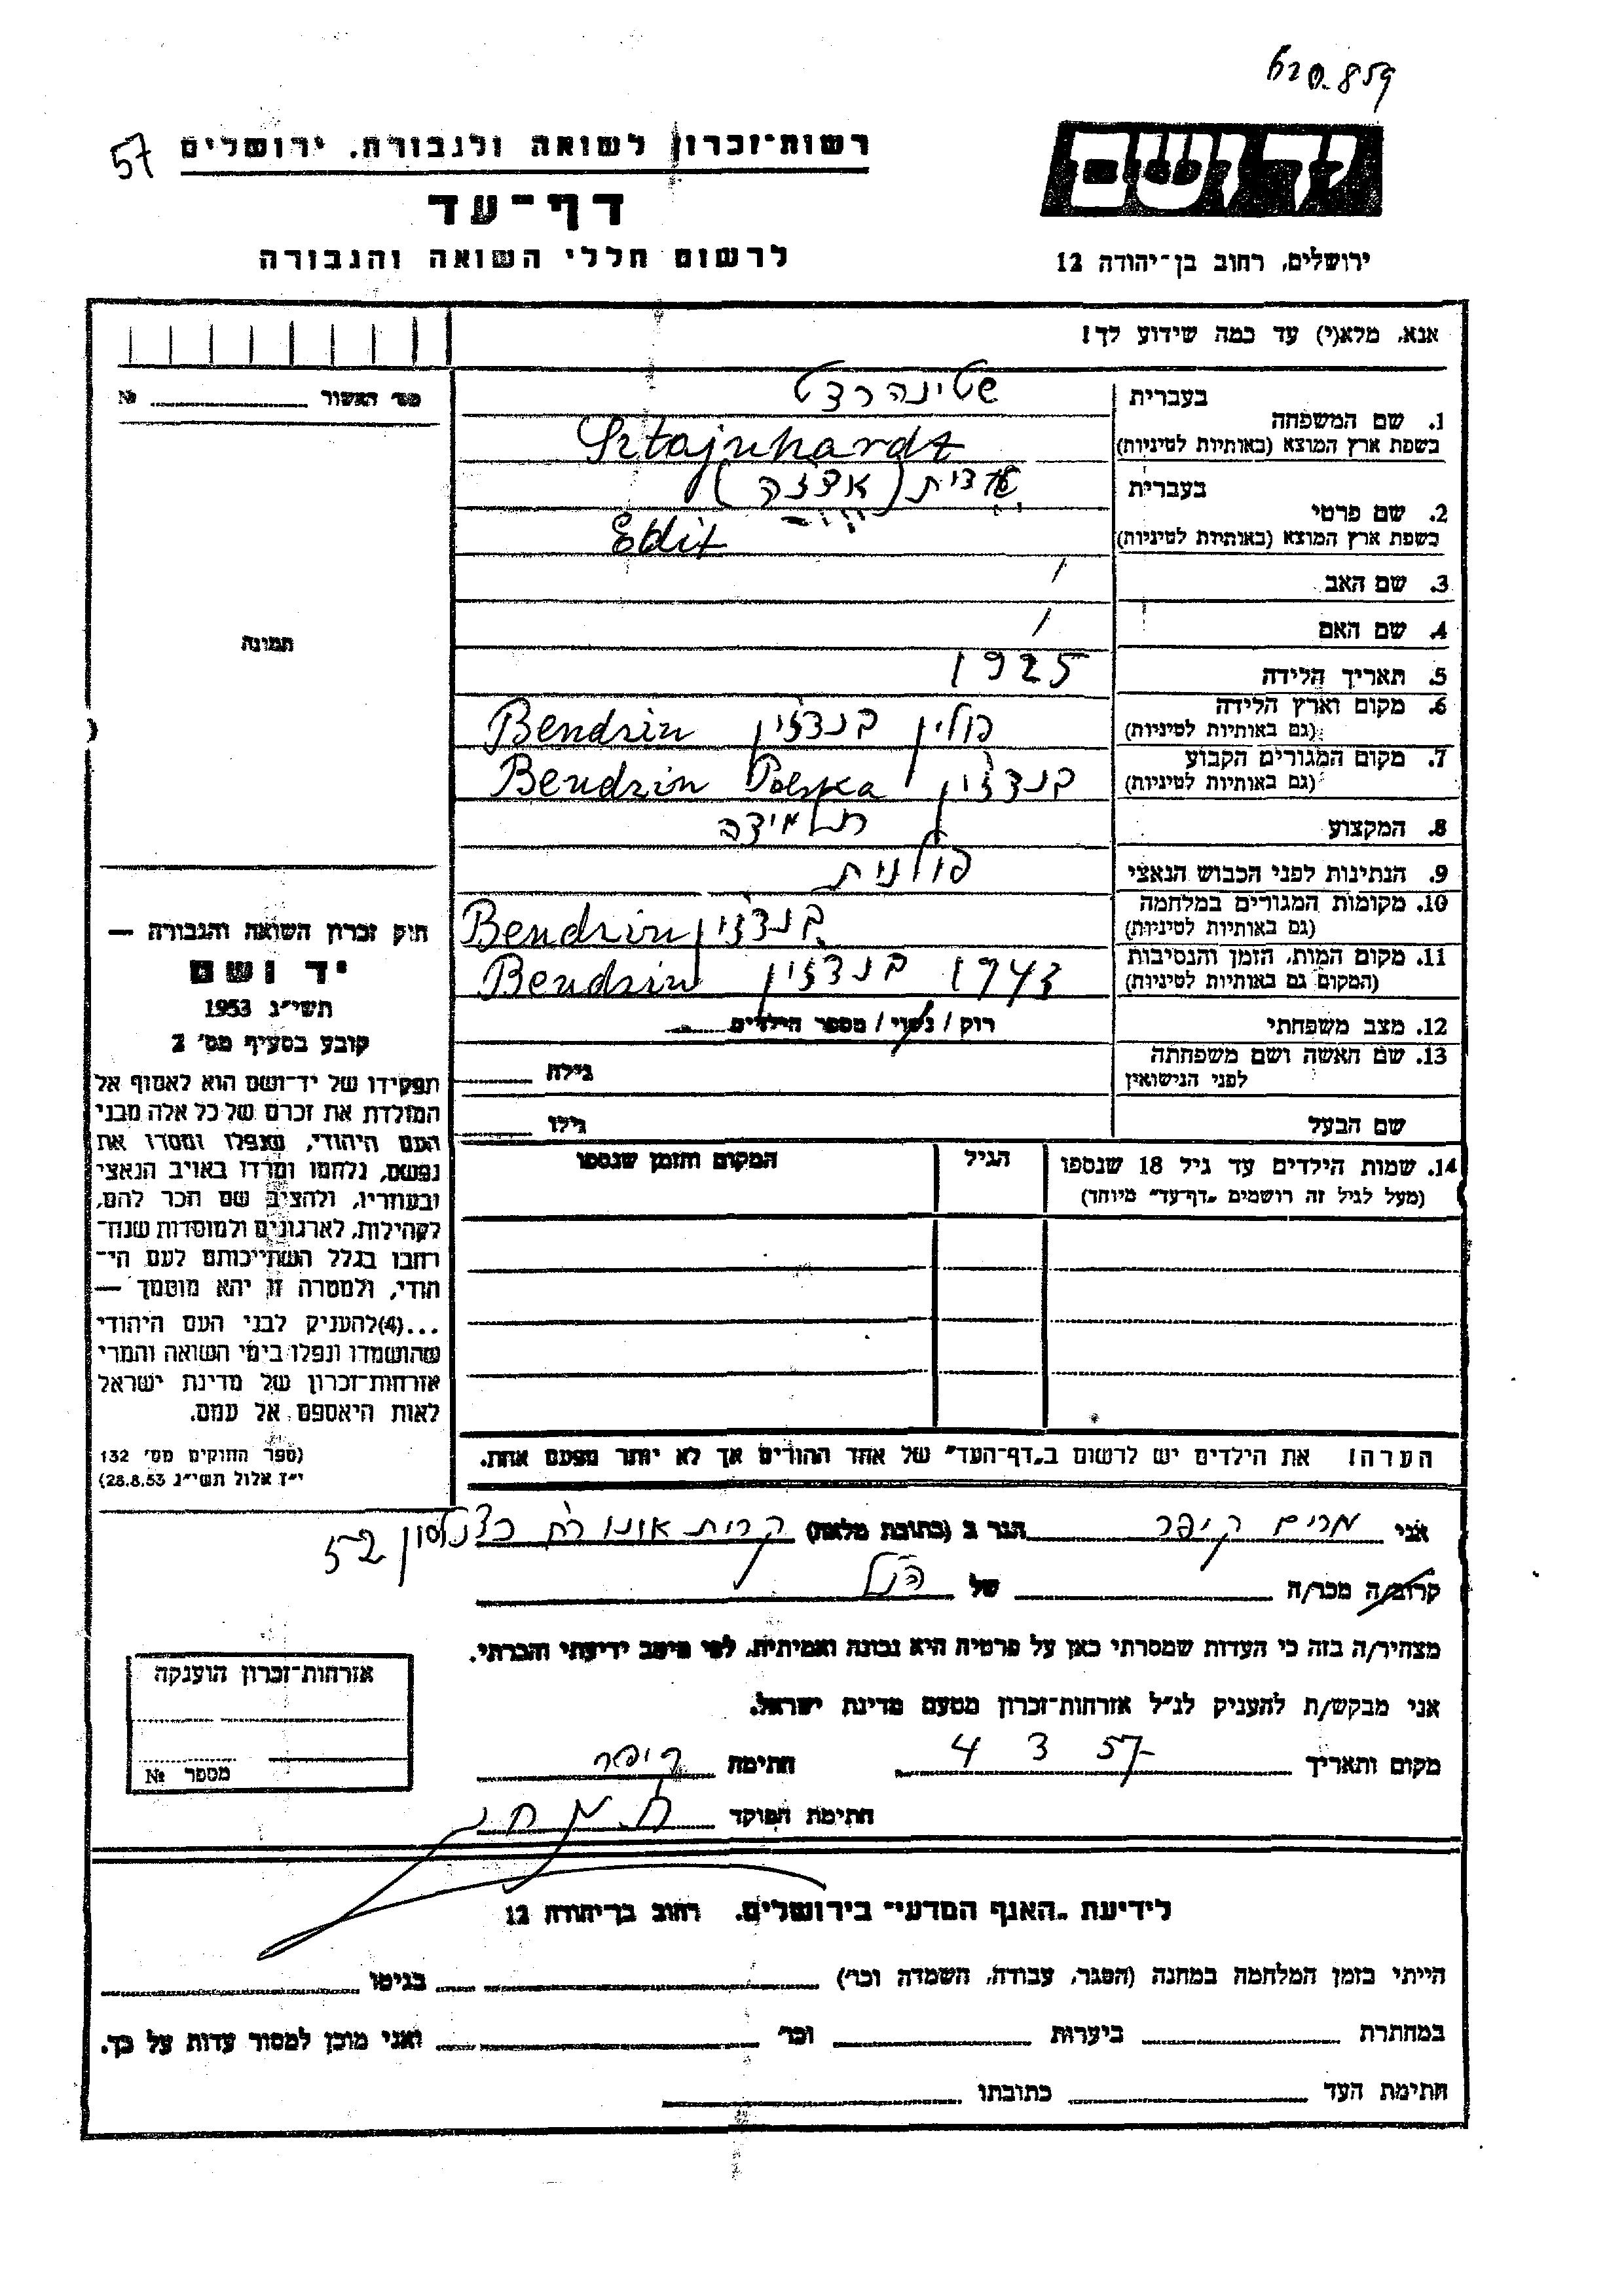 620.859
57
רשות־זכרון לשואה ולגבורה. ירושלים
ידושם
דף־עד
לרשום חללי השואה והגבורה
ירושלים, רחוב בן־יהודה 12
אנא, מלא(י) עד כמה שידוע לך!
מס׳ האשור № 
בעברית שטינהרדט
1. שם המשפחה
בשפת ארץ המוצא (באותיות לטיניות) Sztajnhardt
בעברית אדית (אדזה)
2. שם פרטי
בשפת ארץ המוצא (באותיות לטיניות) Edit
3. שם האב /
4. שם האם /
תמונה
5. תאריך הלידה 1925
6. מקום וארץ הלידה
(גם באותיות לטיניות) פולין בנדזין Bendzin
7. מקום המגורים הקבוע
(גם באותיות לטיניות) בנדזין Bendzin Polska
8. המקצוע תלמידה
9. הנתינות לפני הכבוש הנאצי פולנית
10. מקומות המגורים במלחמה
(גם באותיות לטיניות) בנדזין Bendzin
11. מקום המות, הזמן והנסיבות
(המקום גם באותיות לטיניות) 1943 בנדזין Bendzin
12. מצב משפחתי רוק / נשוי / מספר הילדים
13. שם האשה ושם משפחתה
לפני הנישואין גילה
שם הבעל גילו
14. שמות הילדים עד גיל 18 שנספו הגיל המקום והזמן שנספו
(מעל לגיל זה רושמים „דף־עד” מיוחד)
הערה! את הילדים יש לרשום ב„דף־העד” של אחד ההורים אך לא יותר מפעם אחת.
חוק זכרון השואה והגבורה —
יד ושם
תשי״ג 1953
קובע בסעיף מס׳ 2
תפקידו של יד־ושם הוא לאסוף אל
המולדת את זכרם של כל אלה מבני
העם היהודי, שנפלו ומסרו את
נפשם, נלחמו ומרדו באויב הנאצי
ובעוזריו, ולהציב שם וזכר להם,
לקהילות, לארגונים ולמוסדות שנח־
רבו בגלל השתייכותם לעם הי־
הודי, ולמטרה זו יהא מוסמך —
...(4) להעניק לבני העם היהודי
שהושמדו ונפלו בימי השואה והמרי
אזרחות־זכרון של מדינת ישראל
לאות היאספם אל עמם.
(ספר החוקים מס׳ 132
י״ז אלול תשי״ג 28.8.53)
אני מרים קיפר הגר ב (כתובת מלאה) קרית אונו רח כצנלסון 52
קרוב/ה מכר/ה של הנ״ל
מצהיר/ה בזה כי העדות שמסרתי כאן על פרטיה היא נכונה ואמיתית, לפי מיטב ידיעתי והכרתי.
אני מבקש/ת להעניק לנ״ל אזרחות־זכרון מטעם מדינת ישראל.
מקום ותאריך 4 3 57 חתימה קיפר
חתימת הפוקד
אזרחות־זכרון הוענקה
מספר №
לידיעת „האגף המדעי” בירושלים. רחוב בן־יהודה 12
הייתי בזמן המלחמה במחנה (הסגר, עבודה, השמדה וכר׳) בגיטו
במחתרת ביערות וכר׳ ואני מוכן למסור עדות על כך.
חתימת העד כתובתו